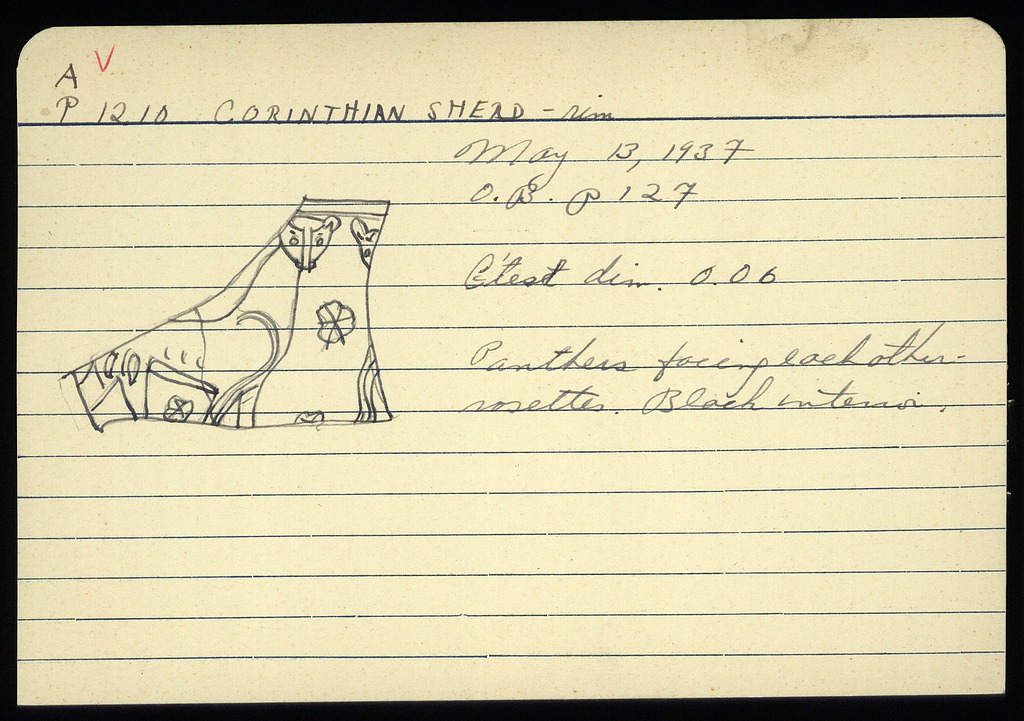 A V
P 1210 CORINTHIAN SHERD - rim
May 13, 1937
O.B. p 127
G'test dim. 0.06
Panthers facing each other-
rosettes. Black interior.